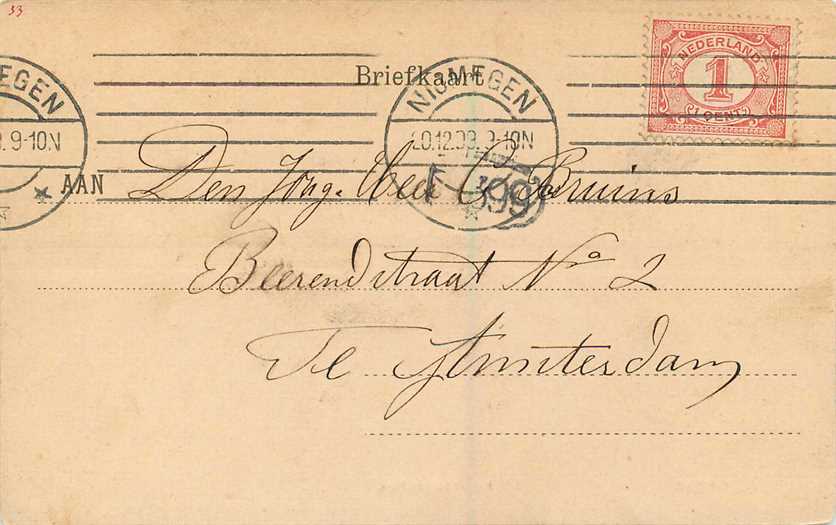 33
NEDERLAND
1
1 CENT
Briefkaart
NIJMEGEN
20.12.09. 9-10N
MEGEN
9. 9-10N
399
AAN Den Jong. C. Bruins
Beerendstraat No 2
Te Amsterdam